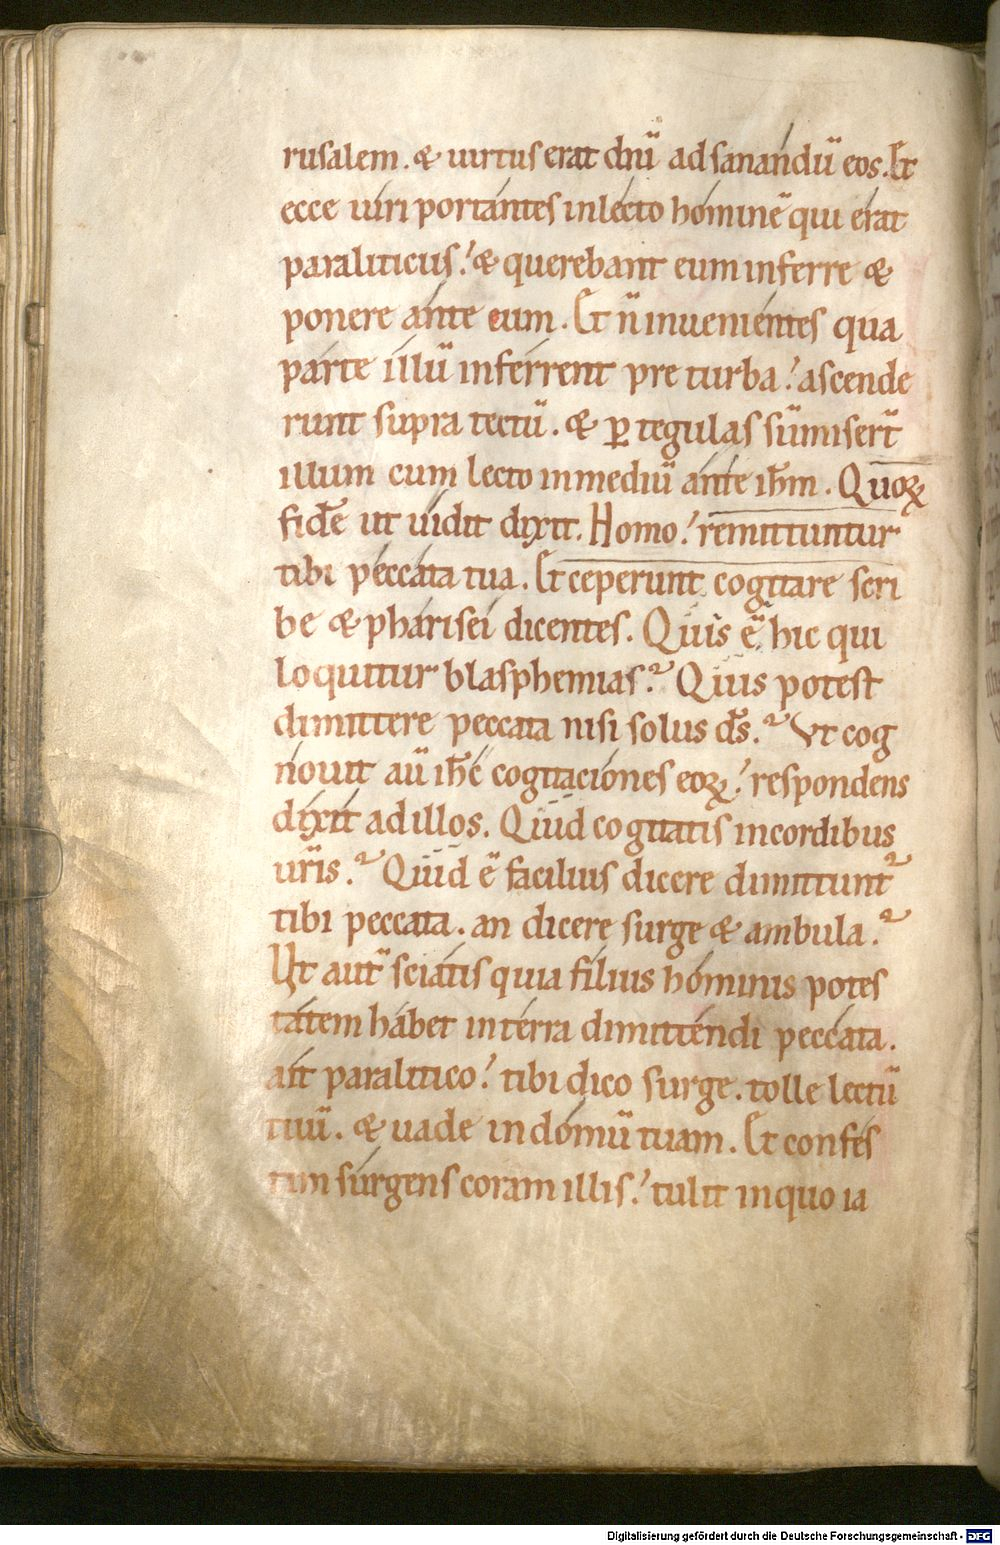 rusalem. & uirtus erat dnū ad sanandū eos. Et
ecce uiri portantes in lecto hominē qui erat
paraliticus. & querebant eum inferre &
ponere ante eum. Et n̄ inuenientes qua
parte illū inferrent pre turba. ascende
runt supra tectū. & ꝑ tegulas sūmiser̄
illum cum lecto in mediū ante ihm̄. Quoꝝ
fidē ut uidit dixit. Homo. remittuntur
tibi peccata tua. Et ceperunt cogitare scri
be & pharisei dicentes. Quis ē hic qui
loquitur blasphemias? Quis potest
dimittere peccata nisi solus ds̄? Vt cog
nouit aū ihc̄ cogitaciones eoꝝ. respondens
dixit ad illos. Quid cogitatis in cordibus
ur̄is? Quid ē facilius dicere dimittunt᷑
tibi peccata. an dicere surge & ambula?
Vt aut̄ sciatis quia filius hominis potes
tatem habet in terra dimittendi peccata.
ait paralitico. tibi dico surge. tolle lectū
tuū. & uade in domū tuam. Et confes
tim surgens coram illis. tulit in quo ia
Digitalisierung gefördert durch die Deutsche Forschungsgemeinschaft - DFG